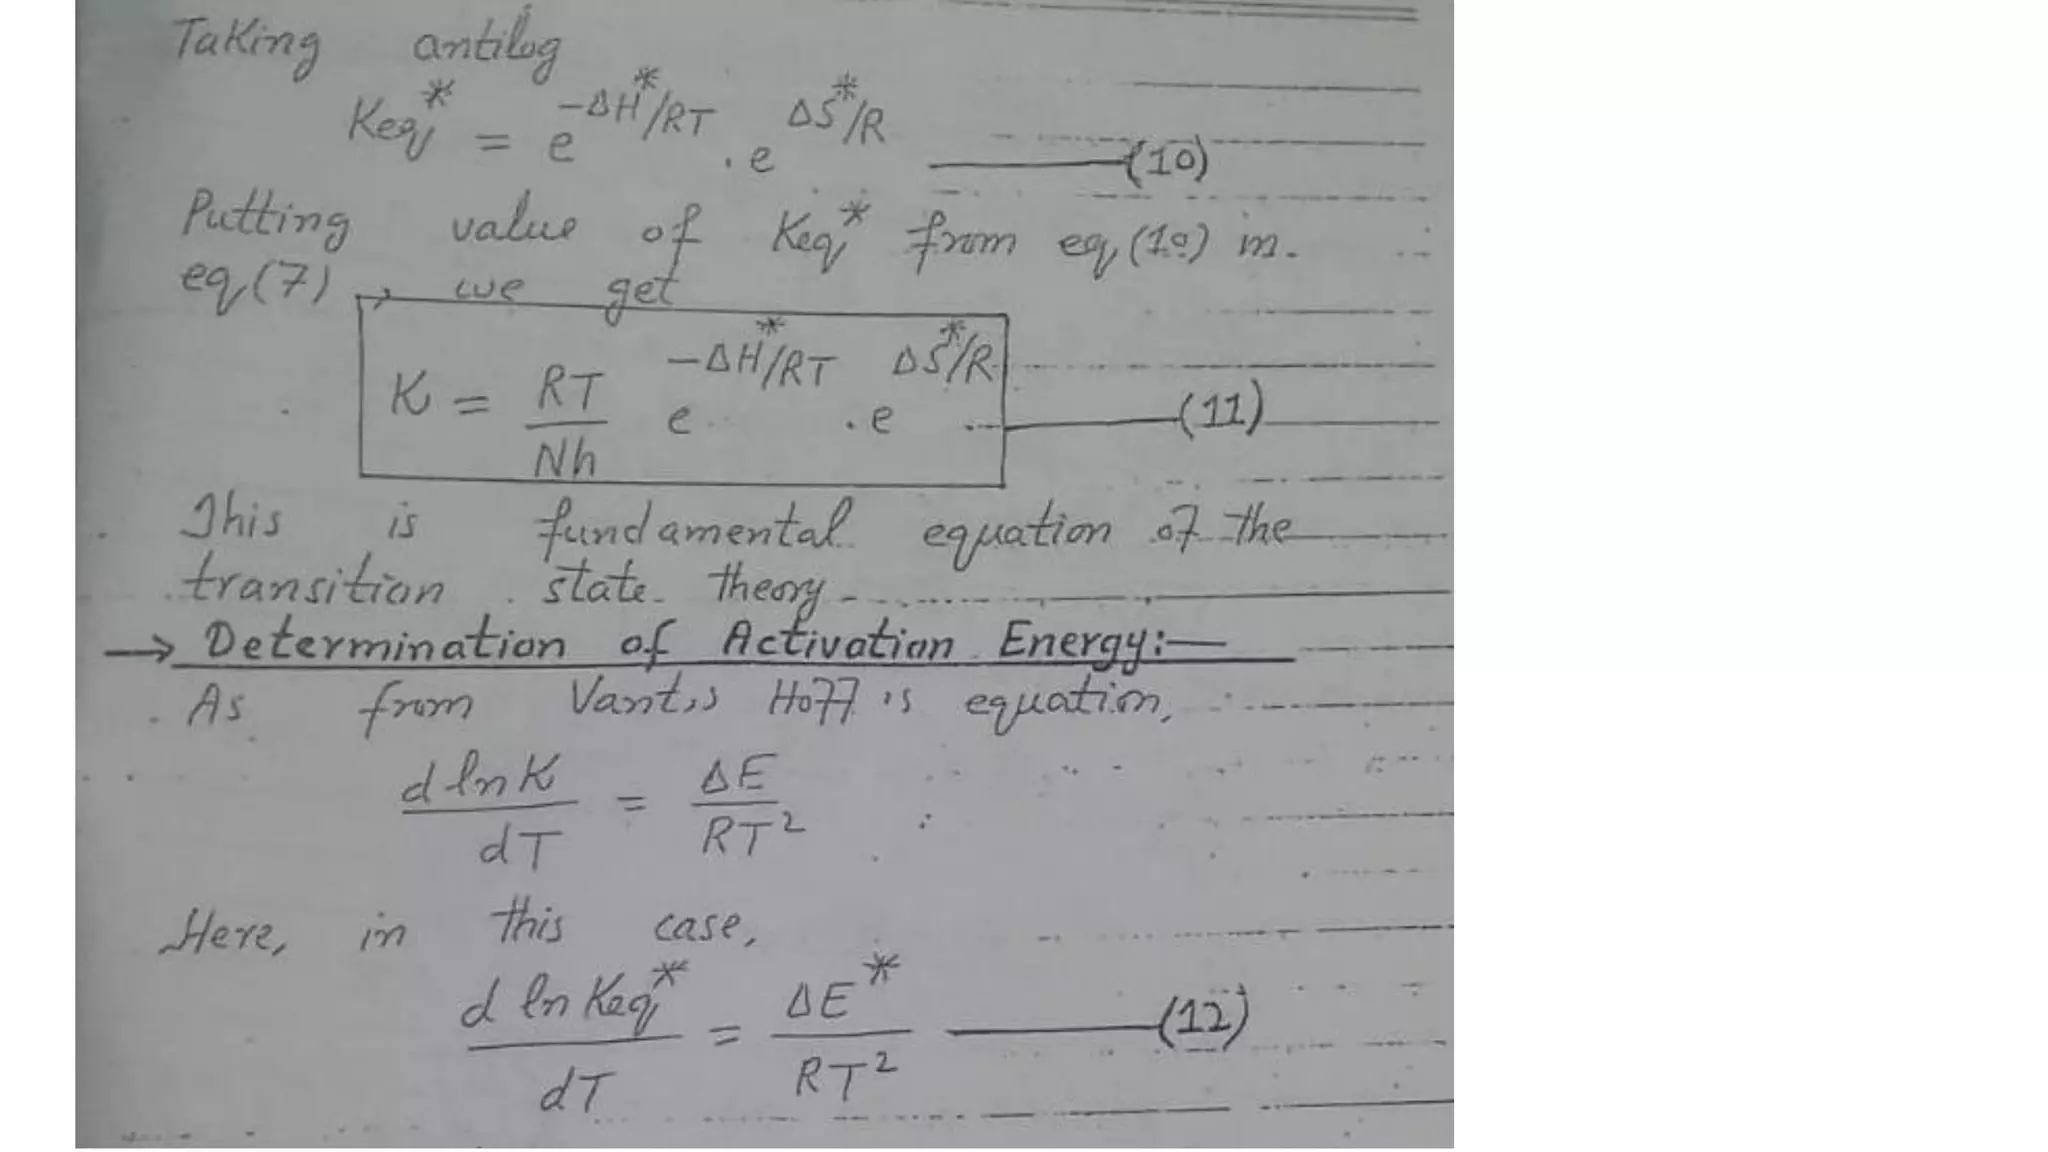 Taking antilog
Keq* = e^(-ΔH*/RT) . e^(ΔS*/R) ——(10)
Putting value of Keq* from eq (10) in
eq (7), we get
K = RT/Nh e^(-ΔH*/RT) . e^(ΔS*/R) ——(11)
This is fundamental equation of the
transition state theory
→ Determination of Activation Energy:—
As from Vant's Hoff's equation,
d lnK/dT = ΔE/RT²
Here, in this case,
d ln Keq*/dT = ΔE*/RT² ——(12)